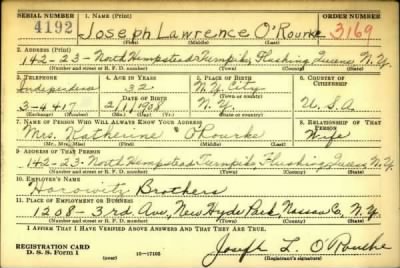 SERIAL NUMBER 1. NAME (Print) ORDER NUMBER
4192 Joseph Lawrence O'Rourke 3169
(First) (Middle) (Last)
2. ADDRESS (Print)
142-23-North Hempstead Turnpike, Flushing Queens N.Y.
(Number and street or R. F. D. number) (Town) (County) (State)
3. TELEPHONE 4. AGE IN YEARS 5. PLACE OF BIRTH 6. COUNTRY OF CITIZENSHIP
Independence 32 N.Y. City
DATE OF BIRTH (Town or county)
3-4417 2/1/1908 N.Y. U.S.A.
(Exchange) (Number) (Mo.) (Day) (Yr.) (State or country)
7. NAME OF PERSON WHO WILL ALWAYS KNOW YOUR ADDRESS 8. RELATIONSHIP OF THAT PERSON
Mrs. Katherine O'Rourke Wife
(Mr., Mrs., Miss) (First) (Middle) (Last)
9. ADDRESS OF THAT PERSON
142-23-North Hempstead Turnpike, Flushing, Queens N.Y.
(Number and street or R. F. D. number) (Town) (County) (State)
10. EMPLOYER'S NAME
Horowitz Brothers
11. PLACE OF EMPLOYMENT OR BUSINESS
1208-3rd. Ave, New Hyde Park, Nassau Co. N.Y.
(Number and street or R. F. D. number) (Town) (County) (State)
I AFFIRM THAT I HAVE VERIFIED ABOVE ANSWERS AND THAT THEY ARE TRUE.
REGISTRATION CARD
D. S. S. FORM 1 (over) 16—17105 Joseph L. O'Rourke
(Registrant's signature)